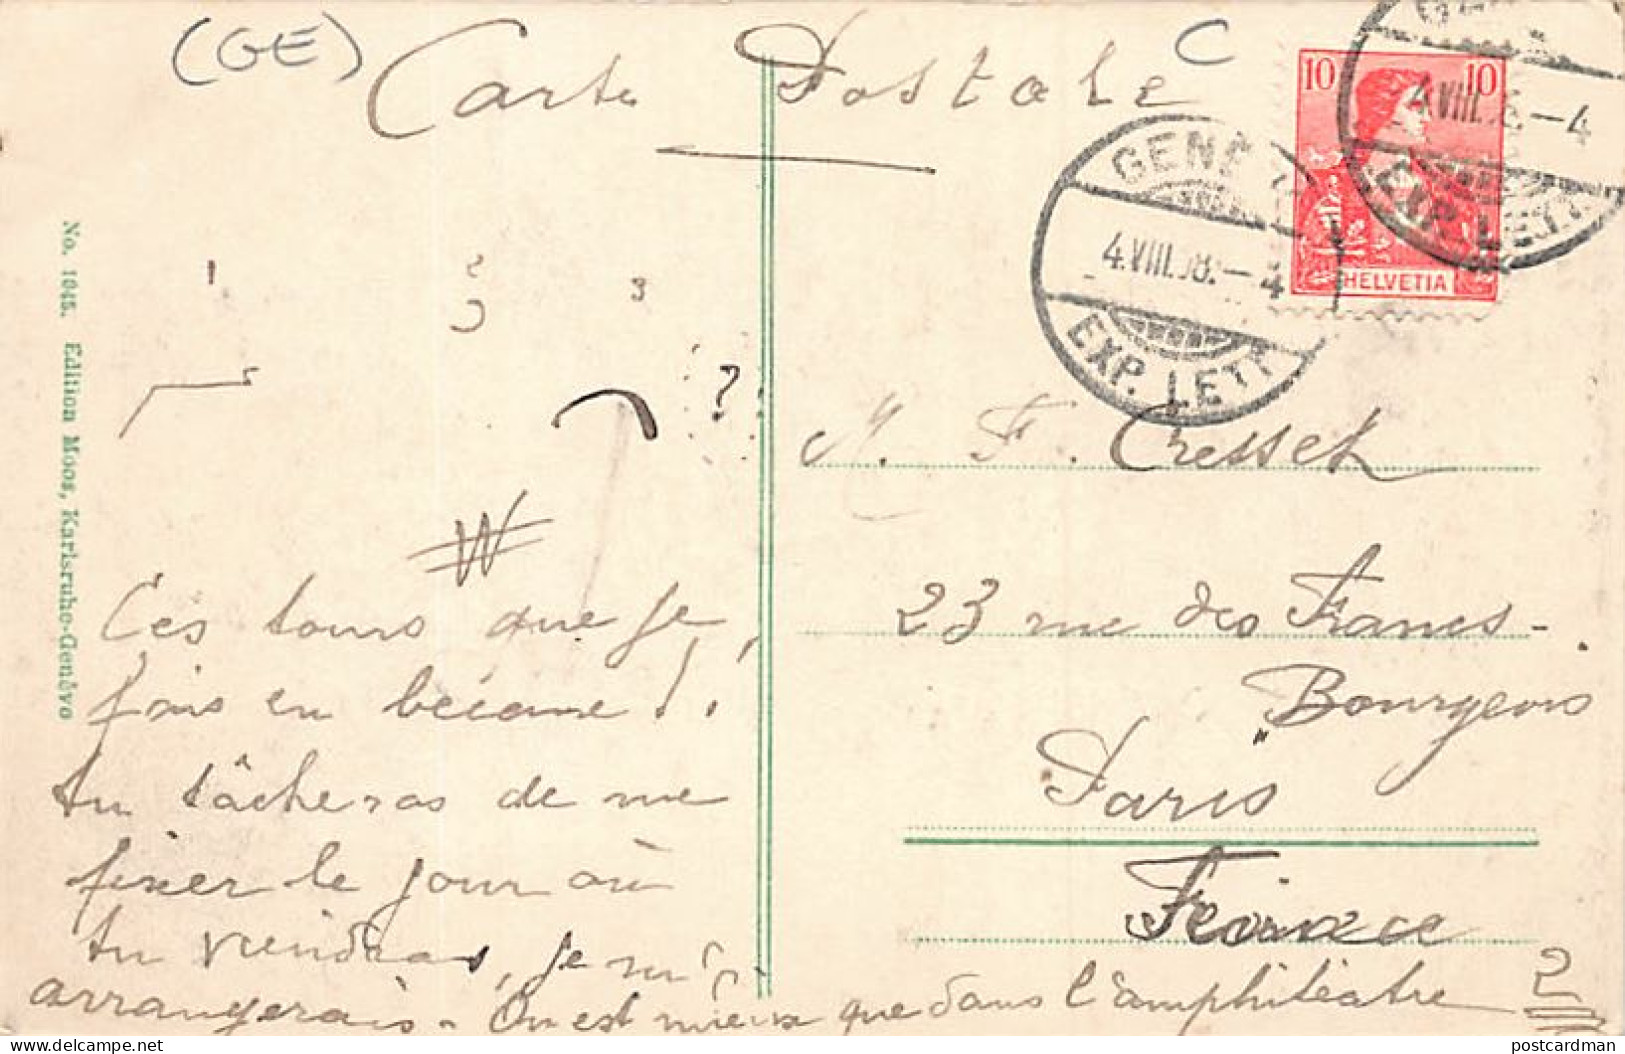 (GE)
Carte Postale
C
10 10
HELVETIA
4.VIII.08.—4
EXP. LETT.
4.VIII. —4
EXP. LETT.
No. 1045. Edition Moos, Karlsruhe-Genève
1 2 3
?
M. F. Cresset
23 rue des Francs-
Bourgeois
Paris
France
Ces tours que je
fais en bécane!
tu tâcheras de me
fixer le jour où
tu viendras, je m'
arrangerais - On est mieux que dans l'amphitéatre
2
postcardman